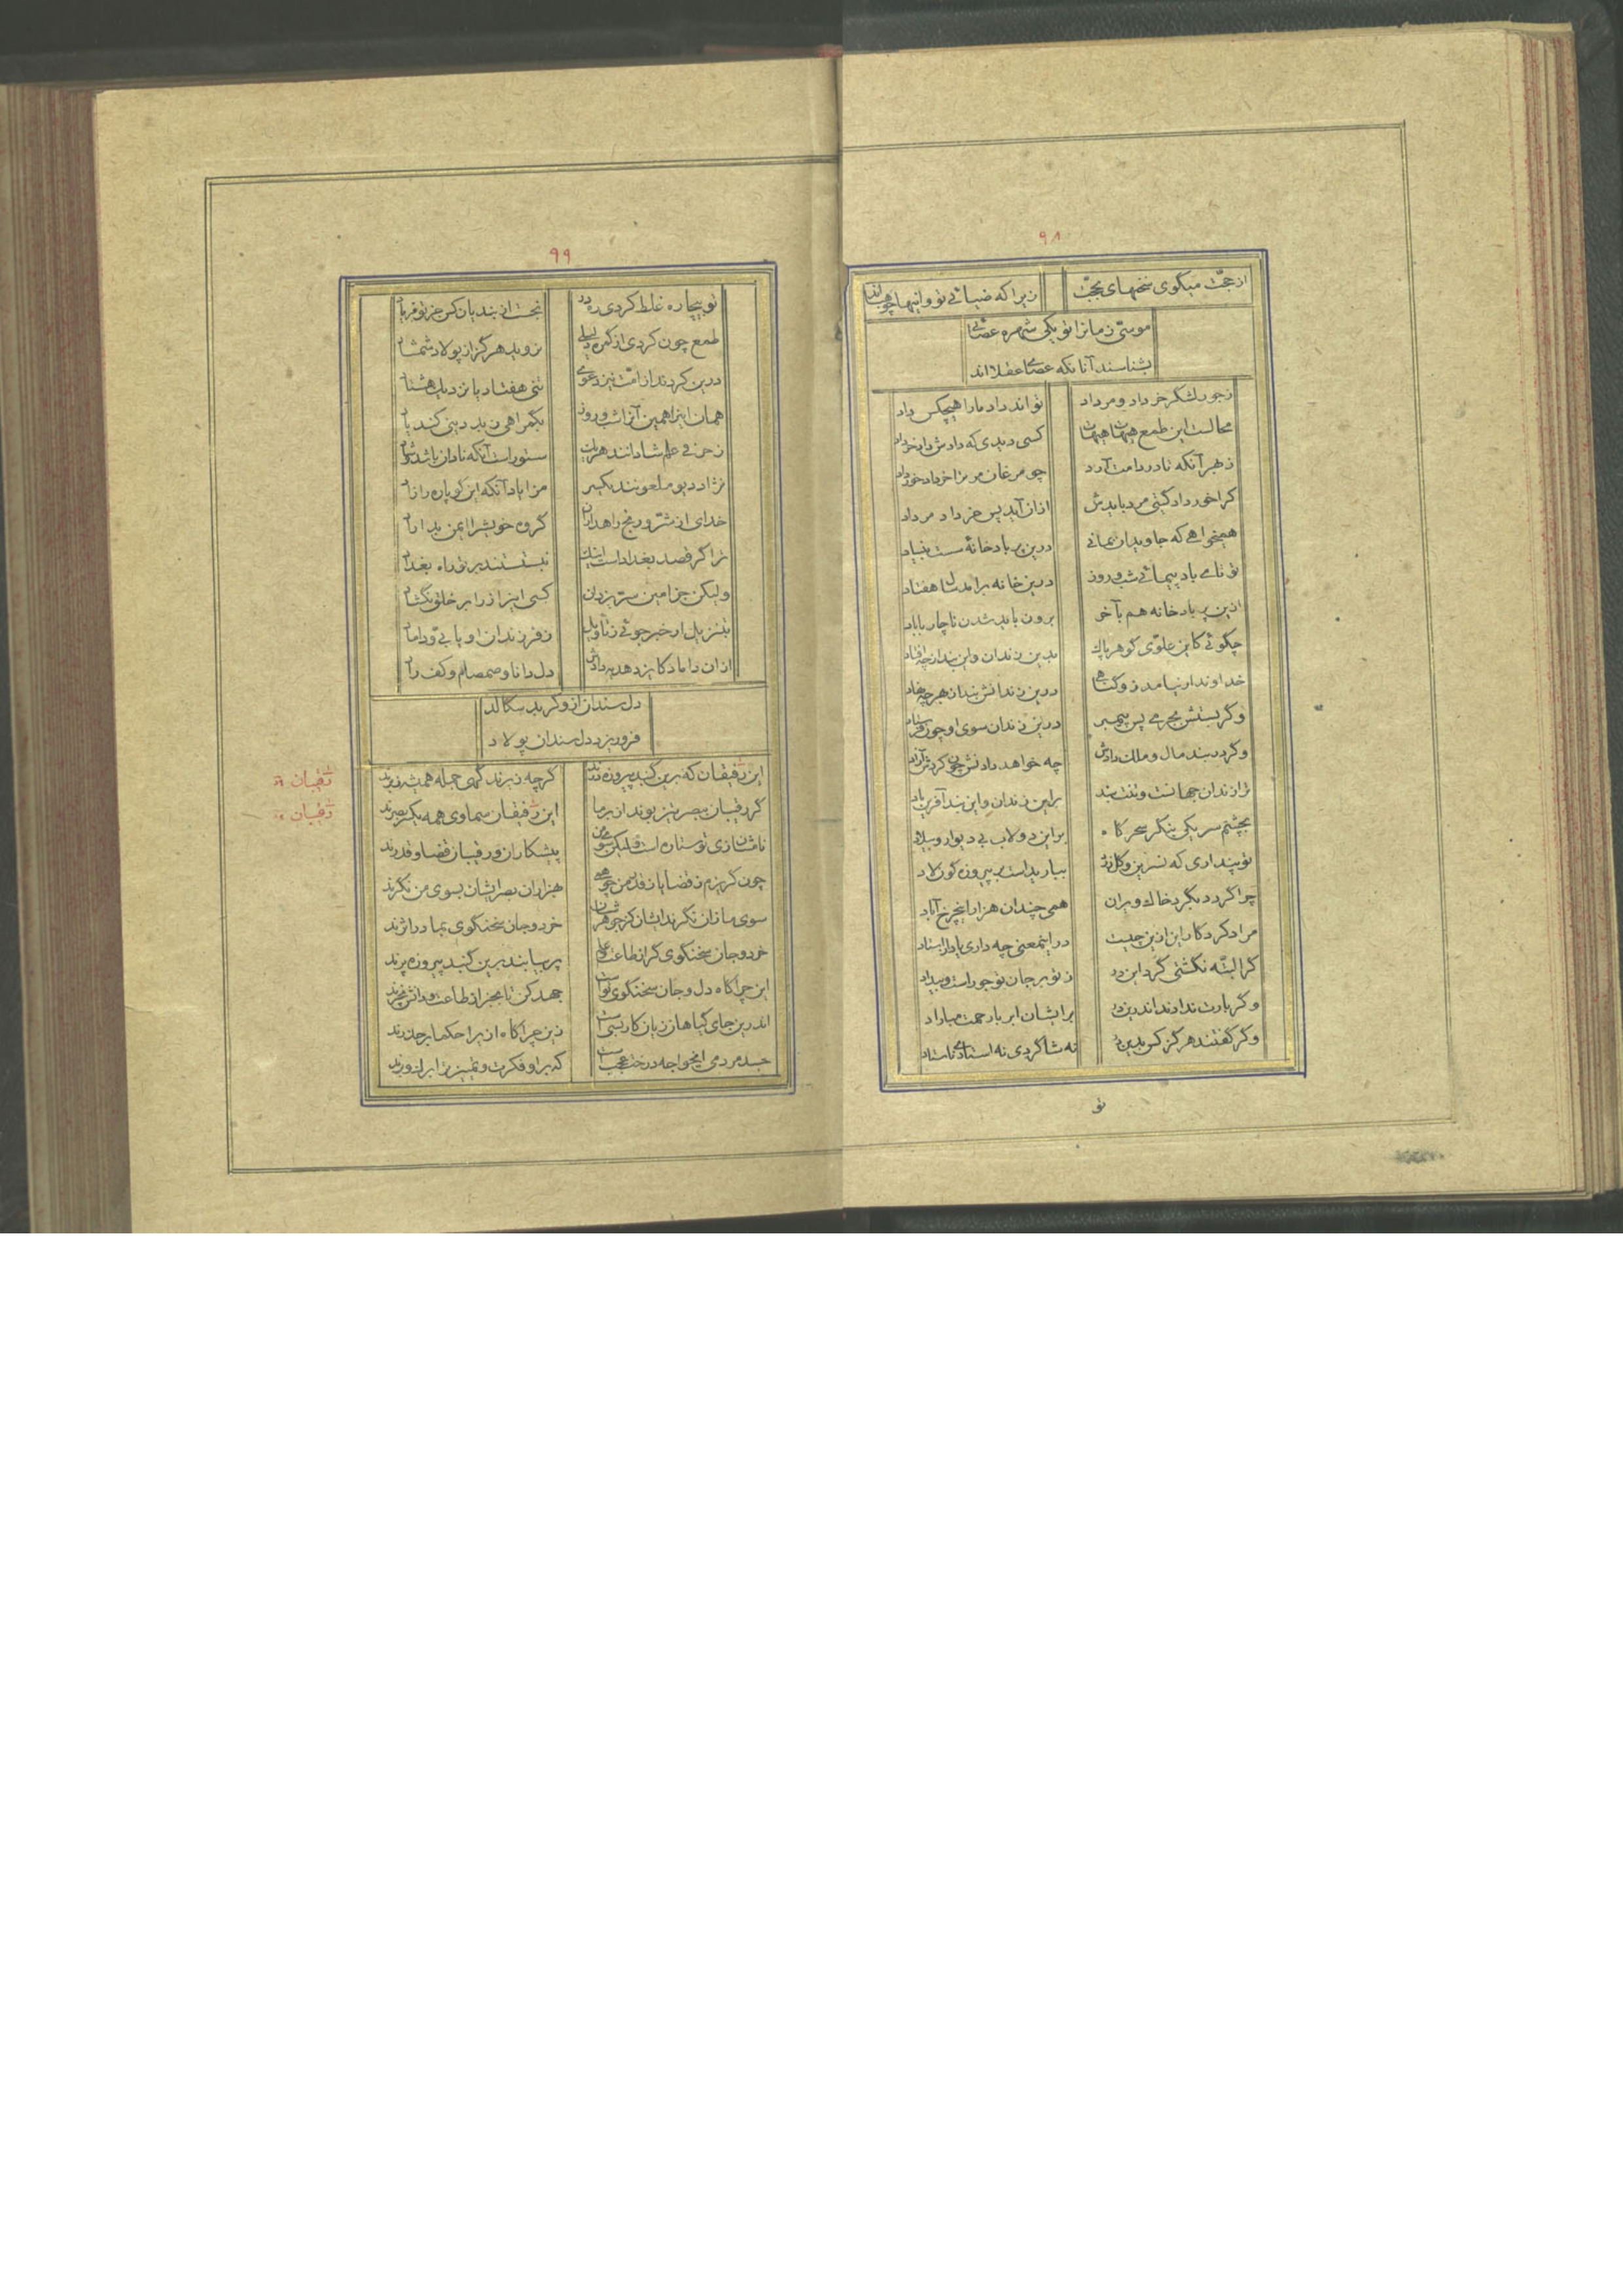 ۹۸
از حجّت میگوی سخنهای بحجّت زیرا که ضیائی تو و اینها چو هبااند
موسیّ زمانرا تو یکی شهره عصائی
بشناسند آنانکه عقلااند
زجور لشکر خرداد و مرداد تواند داد مارا هیچکس داد
محالست این طمع هیهات هیهات کسی دیدی که دادش داد خرداد
زهر آنکه تا در دامت آرد چو مرغان مر ترا خرداد خور داد
کرا خورداد گیتی مرد بایدش ازان آید پس خرداد مرداد
همیخواهی که جاویدان بمانی درین پر بادخانهٔ سست بنیاد
تو تا می باد پیمائی شب و روز درین خانه برآمد سال هفتاد
ازین پر بادخانه هم بآخر برون باید شدن ناچار با باد
چگوئی کاین علوّی گوهر پاک بدین زندان و این بند از چه افتاد
خداوندار نیامد زو گناهی درین زندانش بندان هر چه نهاد
وگر بستش بجرمی پس پیمبر درین زندان سوی او چون فرستاد
وگر در بند مال و ملک دادش چه خواهد دادنش چون کردش آزاد
ترا زندان جهانست و تنت بند برین زندان و این بند آفرین باد
بچشم سر یکی بنگر سحرگاه براین دولاب بی دیوار و بیلاد
تو پنداری که نسرین و گل زرد بباریدست بر پیروزه گون لاد
چرا گردد بگرد خاک ویران همی چندان هزارا نچرخ آباد
مراد کردگار این ازین چیست در اینمعنی چه داری یاد از استاد
گر البتّه نگشتی گرد این در ز تو بر جان تو جور است و بیداد
وگر بارت ندادند اندرین در بر ایشان ابر بار رحمت مباراد
وگر گفتند هرگز کس بدین در نه شاگردی نه استادی ناستاد
تو
۹۹
تو بیچاره غلط کردی ره در نجست از بندیان کس جز تو فریاد
طمع چون کردی از گمره دلیلی نروید هرگز از پولاد شمشاد
درین کردند از امّت نیز دعوی تنی هفتاد یا نزدیک هشتاد
همان اینرا همین آنرا شب و روز بگمراهی ز بد دینی کند یاد
ز جز فی علم شادانند هریک ستور است آنکه نادان باشد و شاد
نژاد دیو ملعونند یکسر مزایاد آنکه این گوباره را زاد
خدای از شرّ و رنج راهداران گروه خویش را ایمن بداراد
ترا گر قصد بغداد است اینک نبستستند بر تو راه بغداد
ولیکن جز امین سرّ یزدان کسی این راز را بر خلق نگشاد
بتنزیل ار خبر جوئی ز تأویل ز فرزندان او یابیّ و داماد
ازان داماد کایزد هدیه دادش دل دانا و صمصام و کف راد
دل سندان ازو گر بد سگالد
فرو ریزد دل سندان پولاد
این رفیقان که برین گنبد پیروزه درند گرچه زیرند گهی جمله همیشه زبرند
گر رفیبان ببصر تیز بوند از بر ما این رفیقان سماوی همه یکسر بصرند
نامشان زی تو ستاره است ولیکن سوی من پیشکاران و رفیبان قضا و قدرند
چون گریزم ز قضا یا ز قدر من چو همی بهزاران بصر ایشان بسوی من نگرند
سوی ما زان نگرند ایشان کز جوهرشان خرد و جان سخنگوی بما در اثرند
خرد و جان سخنگوی گر از طاعت و علم پر بیابند برین گنبد پیروزه پرند
این چراگاه دل و جان سخنگوی تواست جهد کن تا بجز از طاعت و دانش نچرند
اندرین جای گیاهان زیان کار بسی است زین چراگاه ازیرا حکما بر حذرند
جسد مردمی ایخواجه درخت عجب است که بر او فکرت و تمییز ترا برگ و برند
رقیبان
رقیبان